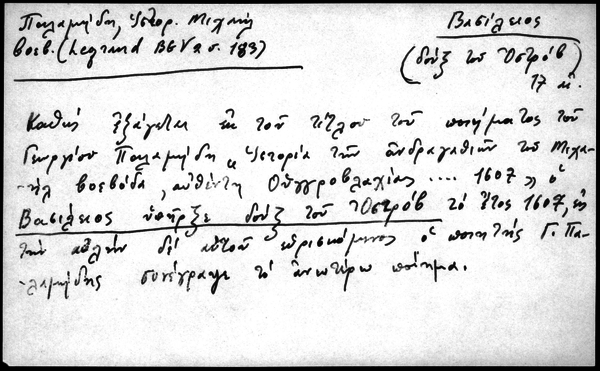 Παλαμήδη, Ἱστορ. Μιχαὴλ
Βοεβ. (Legrand BGV σ. 183)
Βασίλειος
(δούξ τοῦ Ὀστρόβ
17 αἰ.
Καθὼς ἐξάγεται ἐκ τοῦ τίτλου τοῦ ποιήματος τοῦ
Γεωργίου Παλαμήδη "Ἱστορία τῶν ἀνδραγαθιῶν τοῦ Μιχα-
-ήλ βοεβόδα, αὐθέντη Οὑγγροβλαχίας .... 1607" ὁ
Βασίλειος ὑπῆρξε δούξ τοῦ Ὀστρόβ τὸ ἔτος 1607, εἰς
τὴν αὐλὴν δὲ αὐτοῦ εὑρισκόμενος ὁ ποιητής Γ. Πα-
-λαμήδης συνέγραψε τὸ ἀνωτέρω ποίημα.